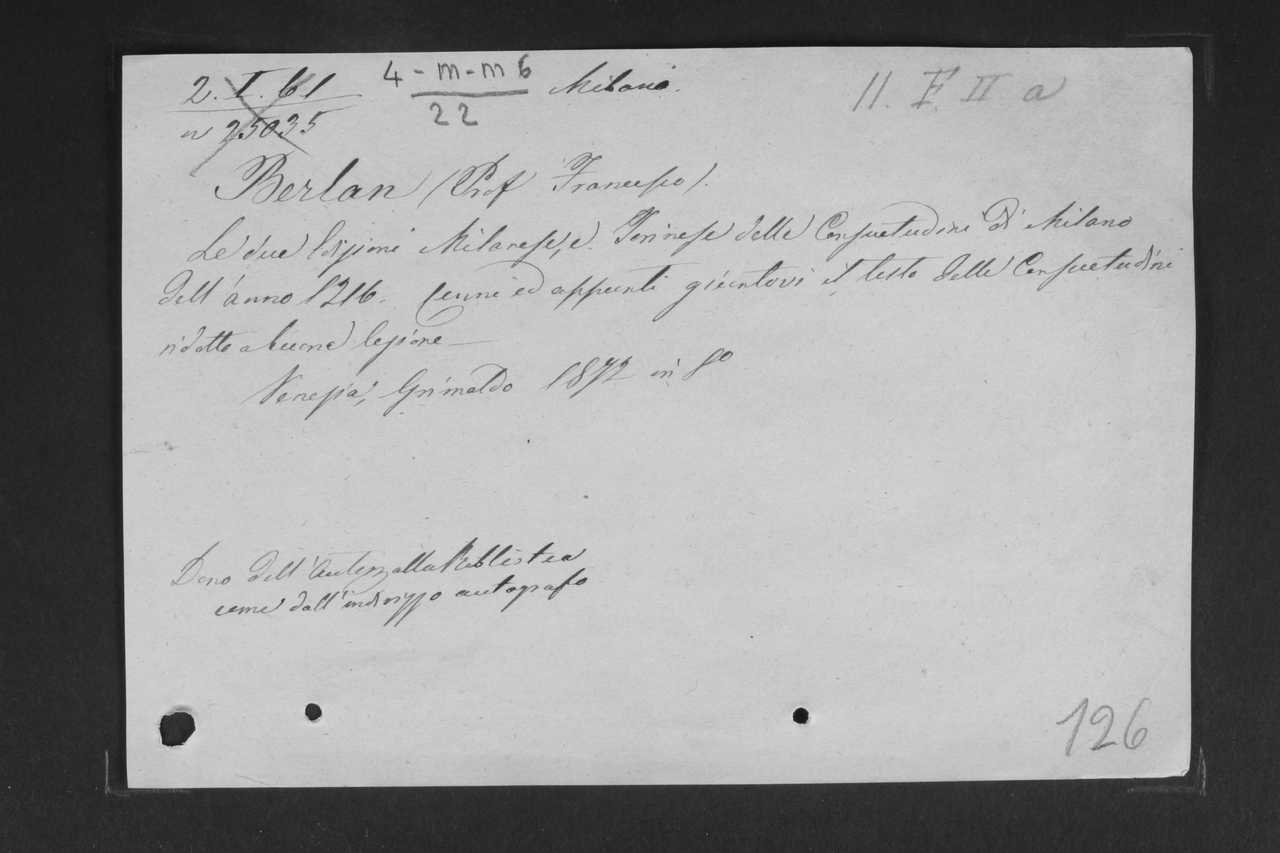 2. I. 61 4-m-m 6 Milano. 11. F. II a
n 25035 22
Berlan (Prof Francesco).
Le due Edizioni Milanese, e Torinese delle Consuetudini di Milano
dell'anno 1216. Cenni ed appunti giuntovi il testo delle Consuetudini
ridotto a buona lezione —
Venezia, Grimaldo 1872 in 8º
Dono dell'Autore alla
come dall'indirizzo autografo
126